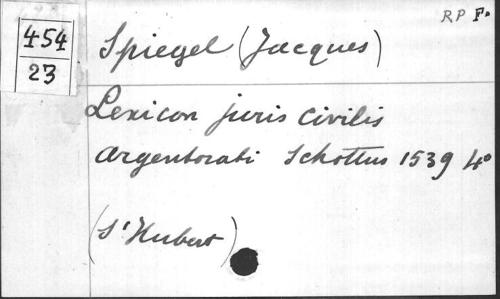 RP F.
454
23
Spiegel (Jacques)
Lexicon juris civilis
Argentorati Schottus 1539 4°
(St Hubert)